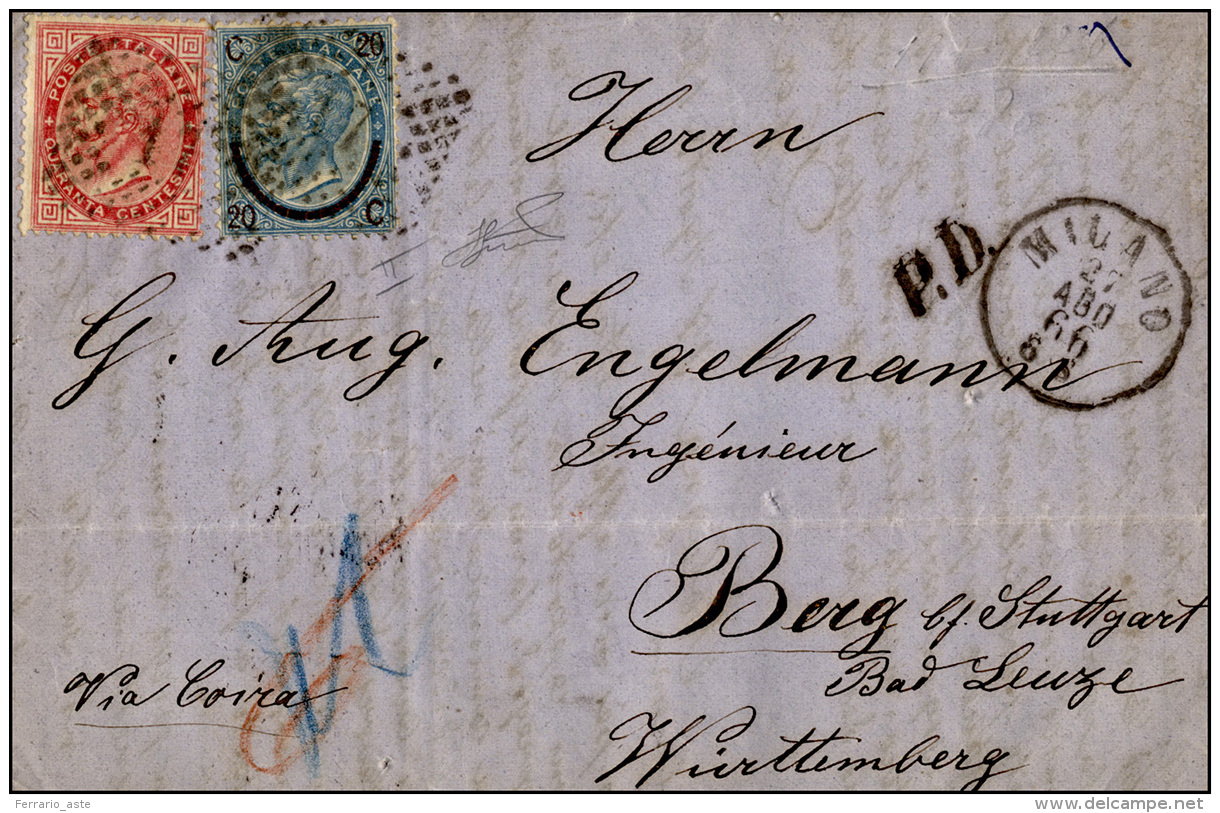 POSTE ITALIANE
QUARANTA CENTESIMI
C 20
POSTE ITALIANE
20 C
II
Herrn
P.D.
MILANO
27
AGO
66
G. Aug. Engelmann
Ingénieur
Berg b/. Stuttgart
Bad Leuze
Via Coira
Württemberg
Ferrario_aste
www.delcampe.net